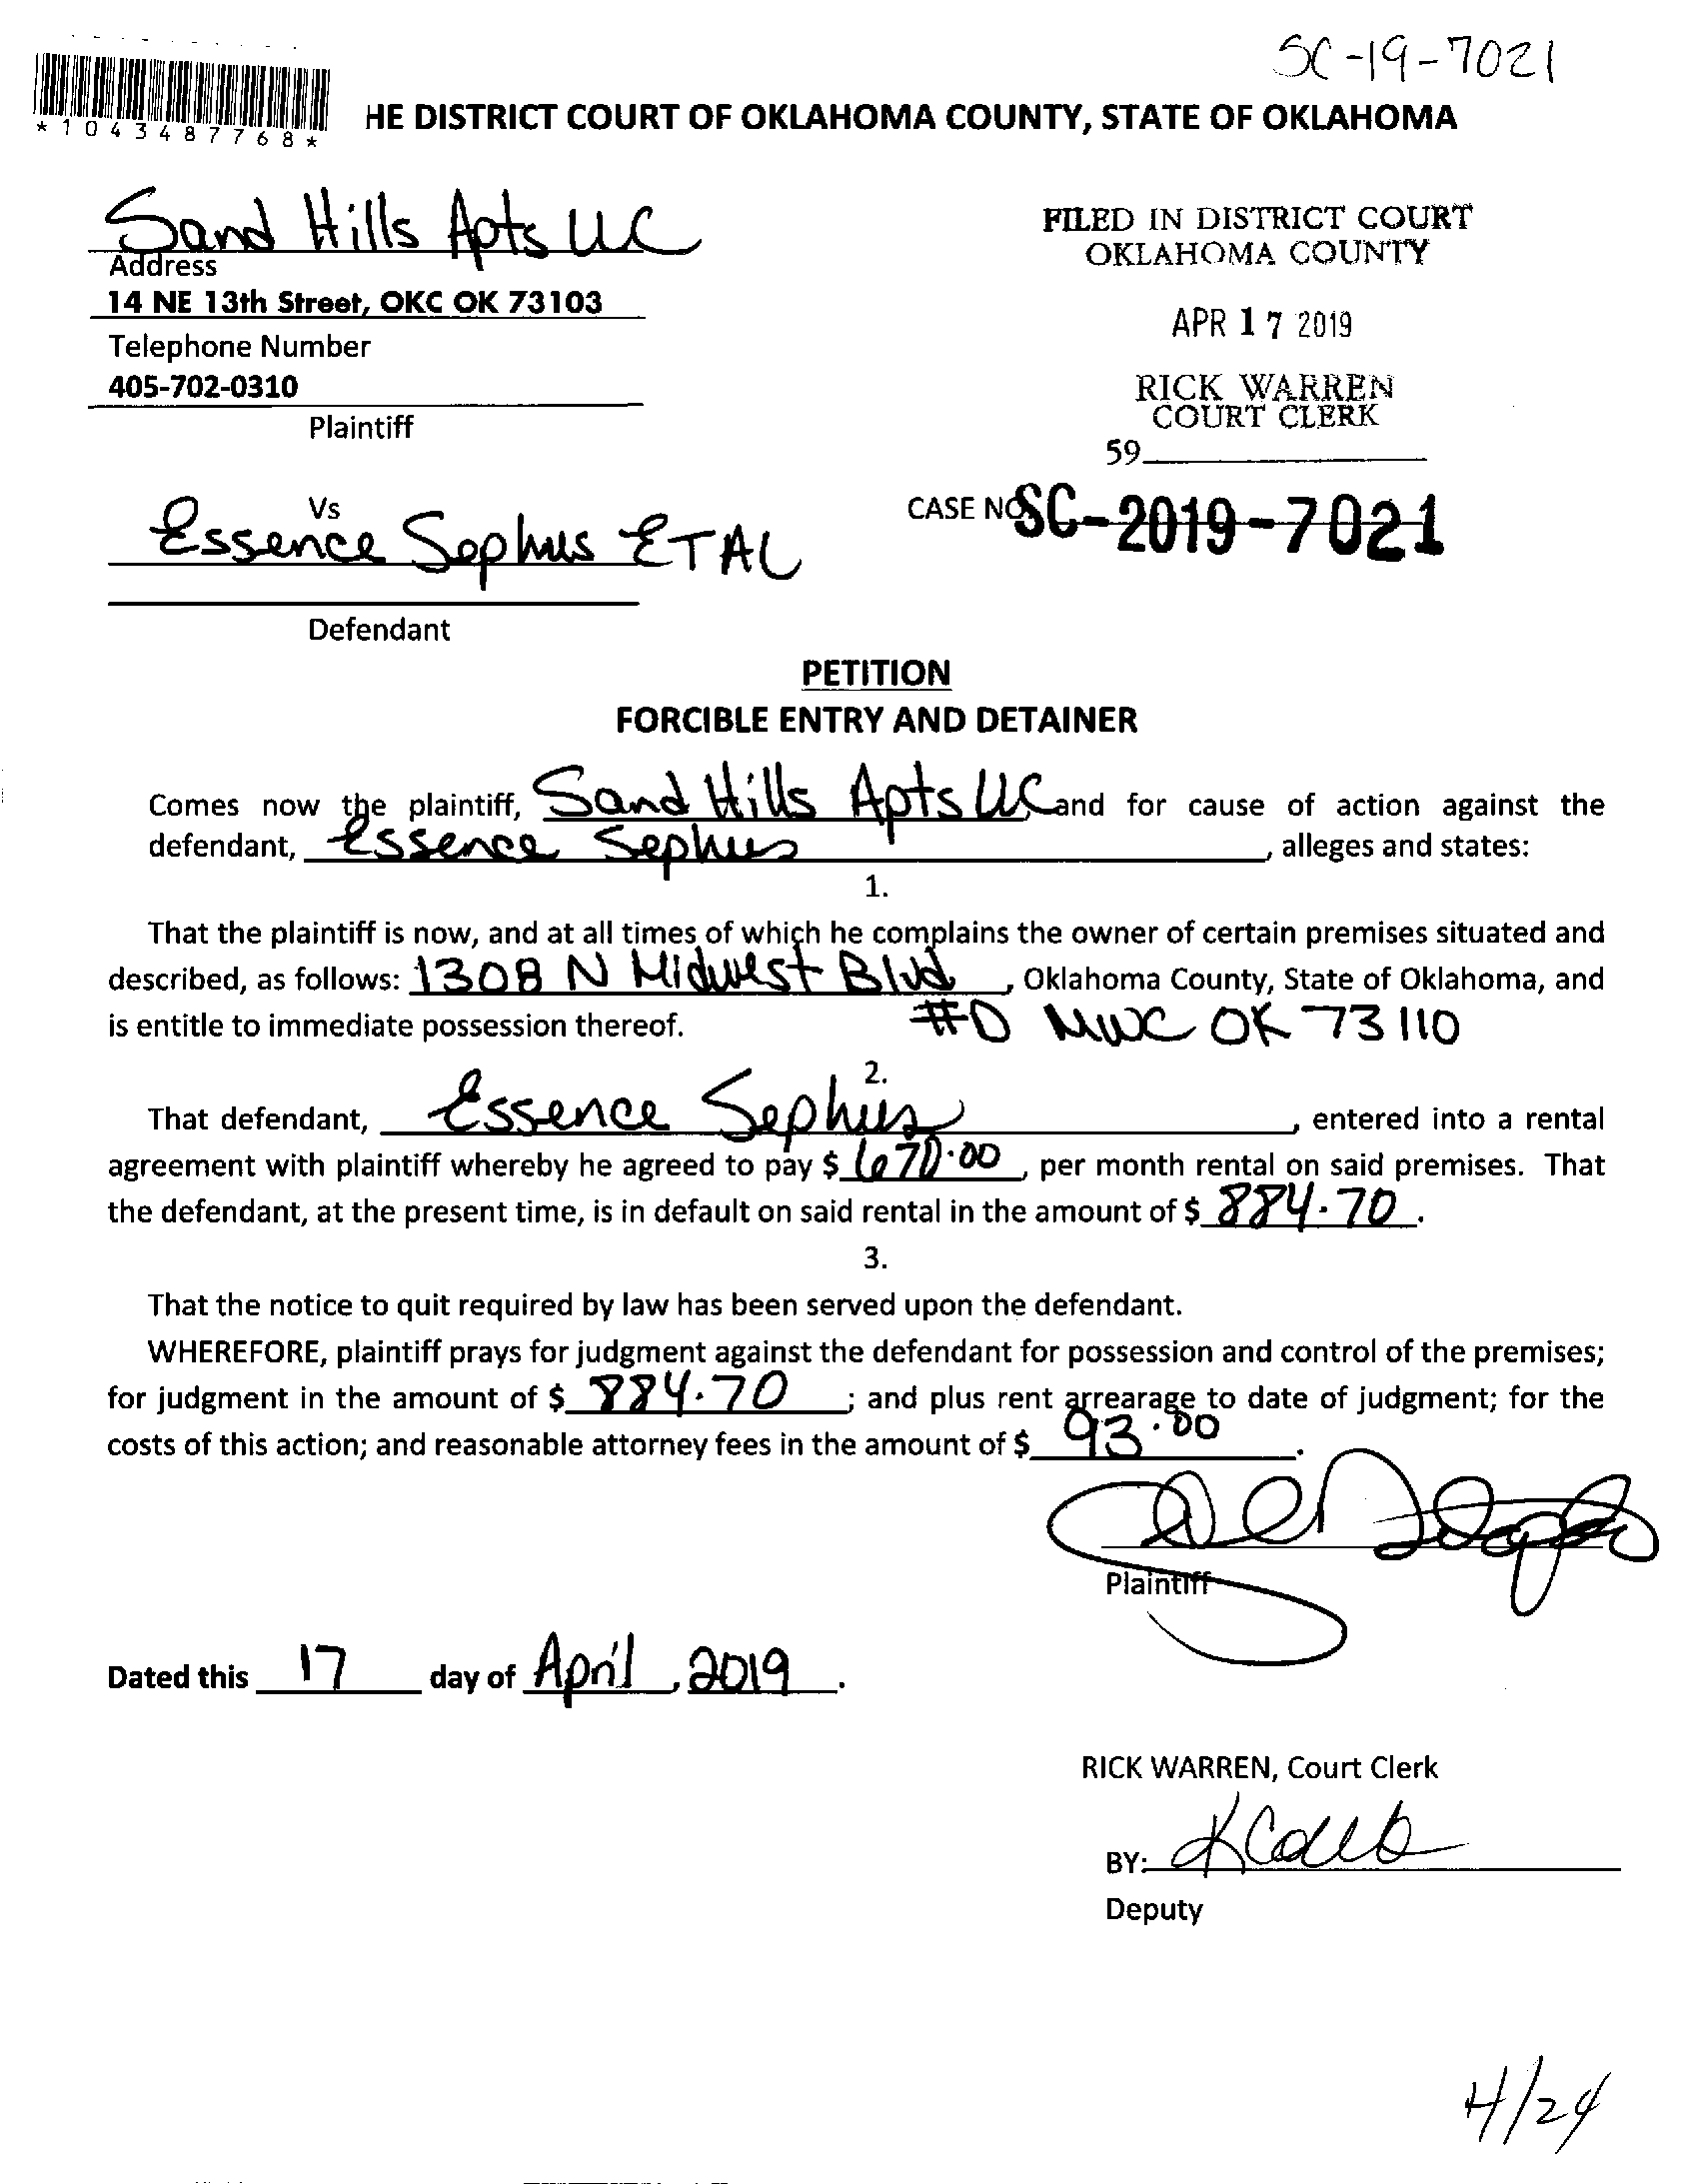 SC-19-7021
*1043487768*
HE DISTRICT COURT OF OKLAHOMA COUNTY, STATE OF OKLAHOMA
Sand Hills Apts LLC
Address
14 NE 13th Street, OKC OK 73103
Telephone Number
405-702-0310
Plaintiff
FILED IN DISTRICT COURT
OKLAHOMA COUNTY
APR 17 2019
RICK WARREN
COURT CLERK
59
Vs
Essence Sephus ETAL
Defendant
CASE NO SC-2019-7021
PETITION
FORCIBLE ENTRY AND DETAINER
Comes now the plaintiff, Sand Hills Apts LLC, and for cause of action against the
defendant, Essence Sephus, alleges and states:
1.
That the plaintiff is now, and at all times of which he complains the owner of certain premises situated and
described, as follows: 1308 N Midwest Blvd, Oklahoma County, State of Oklahoma, and
is entitle to immediate possession thereof. #D MWC OK 73110
2.
That defendant, Essence Sephus, entered into a rental
agreement with plaintiff whereby he agreed to pay $ 670.00, per month rental on said premises. That
the defendant, at the present time, is in default on said rental in the amount of $ 884.70.
3.
That the notice to quit required by law has been served upon the defendant.
WHEREFORE, plaintiff prays for judgment against the defendant for possession and control of the premises;
for judgment in the amount of $ 884.70; and plus rent arrearage to date of judgment; for the
costs of this action; and reasonable attorney fees in the amount of $ 93.00.
Plaintiff
Dated this 17 day of April, 2019.
RICK WARREN, Court Clerk
BY:
Deputy
4/24